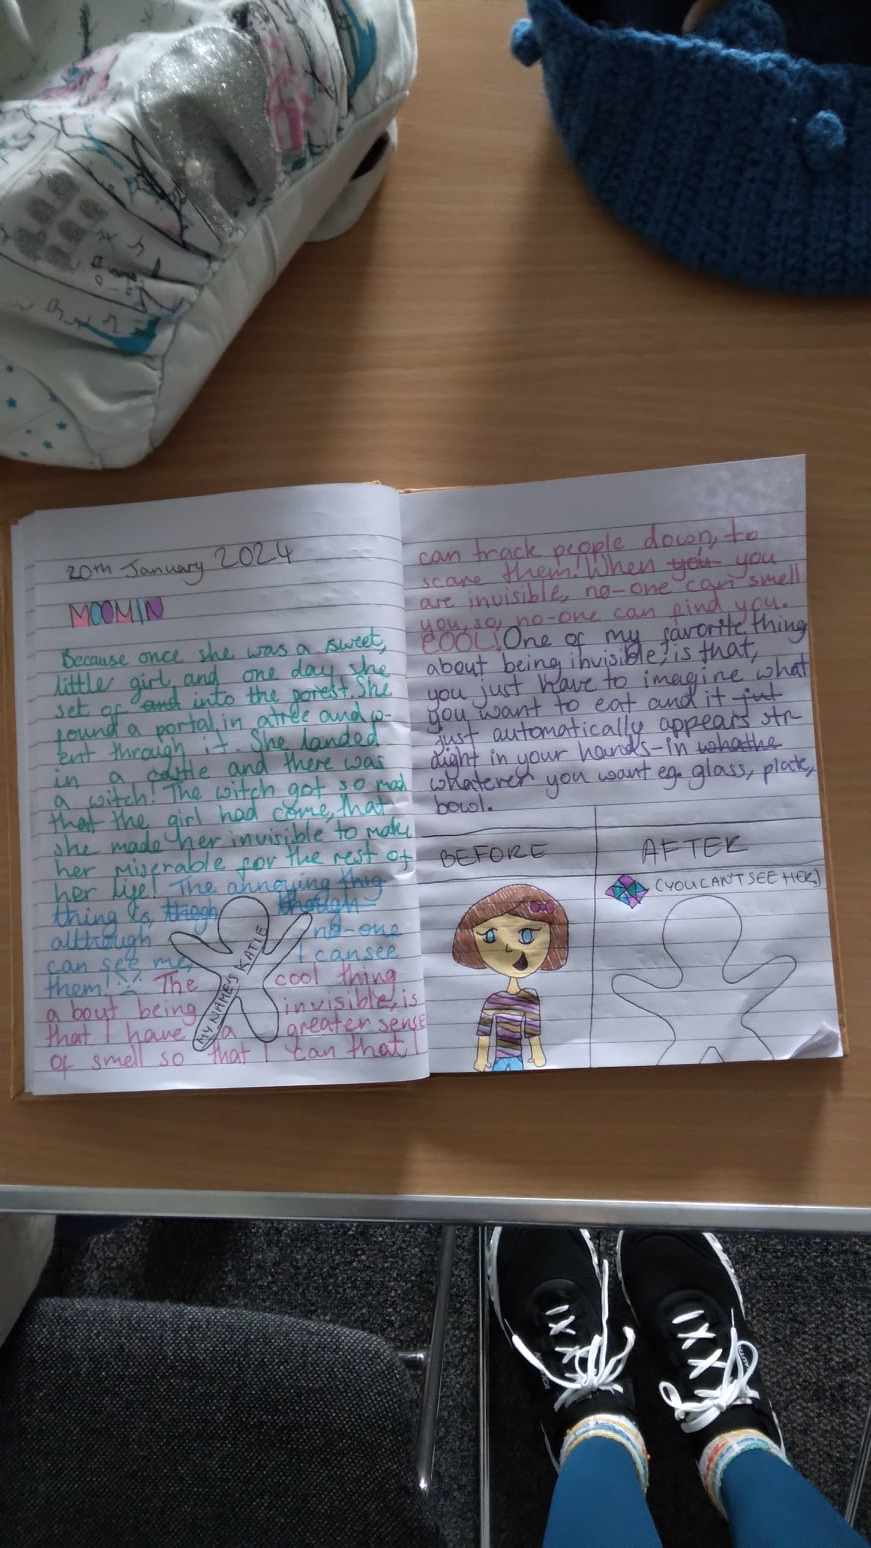 20th January 2024
MOOMIN
Because once she was a sweet,
little girl, and one day she
set of and into the forest. She
found a portal in a tree and p-
ent through it. She landed
in a castle and there was
a witch! The witch got so mad
that the girl had come, that
she made her invisible to make
her miserable for the rest of
her life! The annoying thig
thing is though though
although no-one
can see me, I can see
them! The cool thing
about being invisible, is
that I have a greater sense
of smell so that I can that
MY NAME'S KATIE
can track people down, to
scare them! When you you
are invisible, no-one can smell
you, so, no-one can find you.
COOL! One of my favorite thing
about being invisible, is that,
you just have to imagine what
you want to eat and it jut
just automatically appears str-
aight in your hands-in whathe
whatever you want eg. glass, plate,
bowl.
BEFORE
AFTER
(YOU CAN'T SEE HER)